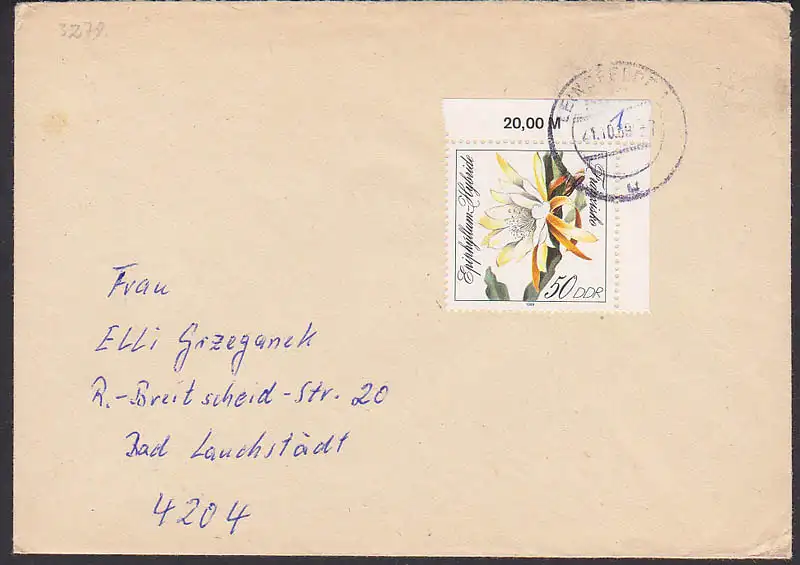 3278.
20,00 M
1
21.10.89
Epiphyllum-Hybride
50 DDR
1989
Frau
Elli Grzeganek
R.-Breitscheid-Str. 20
Bad Lauchstädt
4204